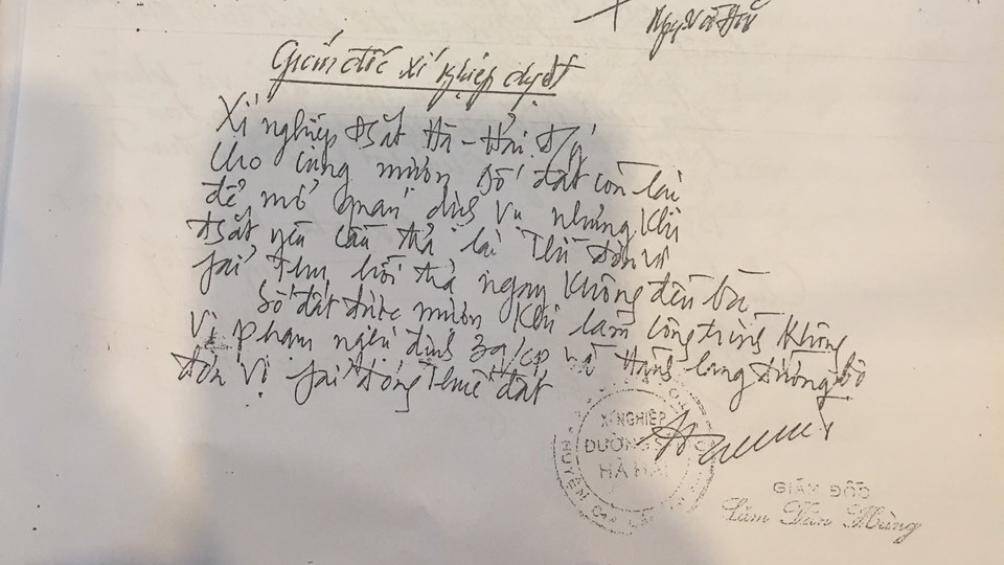 Giám đốc xí nghiệp duyệt
Xí nghiệp Đsắt Hà - Hải Đ/ý
cho cùng mướn số đất còn lại
để mở quán dịch vụ nhưng khi
Đsắt yêu cầu trả lại thì đơn vị
fải thu hồi trả ngay không đền bù
Số đất được mướn khi làm công trình không
vi phạm nghị định 39/CP về hành lang đường bộ
Đơn vị fải đóng thuế đất
XÍ NGHIỆP
ĐƯỜNG
HÀ HẢI
HUYỆN
GIÁM ĐỐC
Lâm Văn Mùng